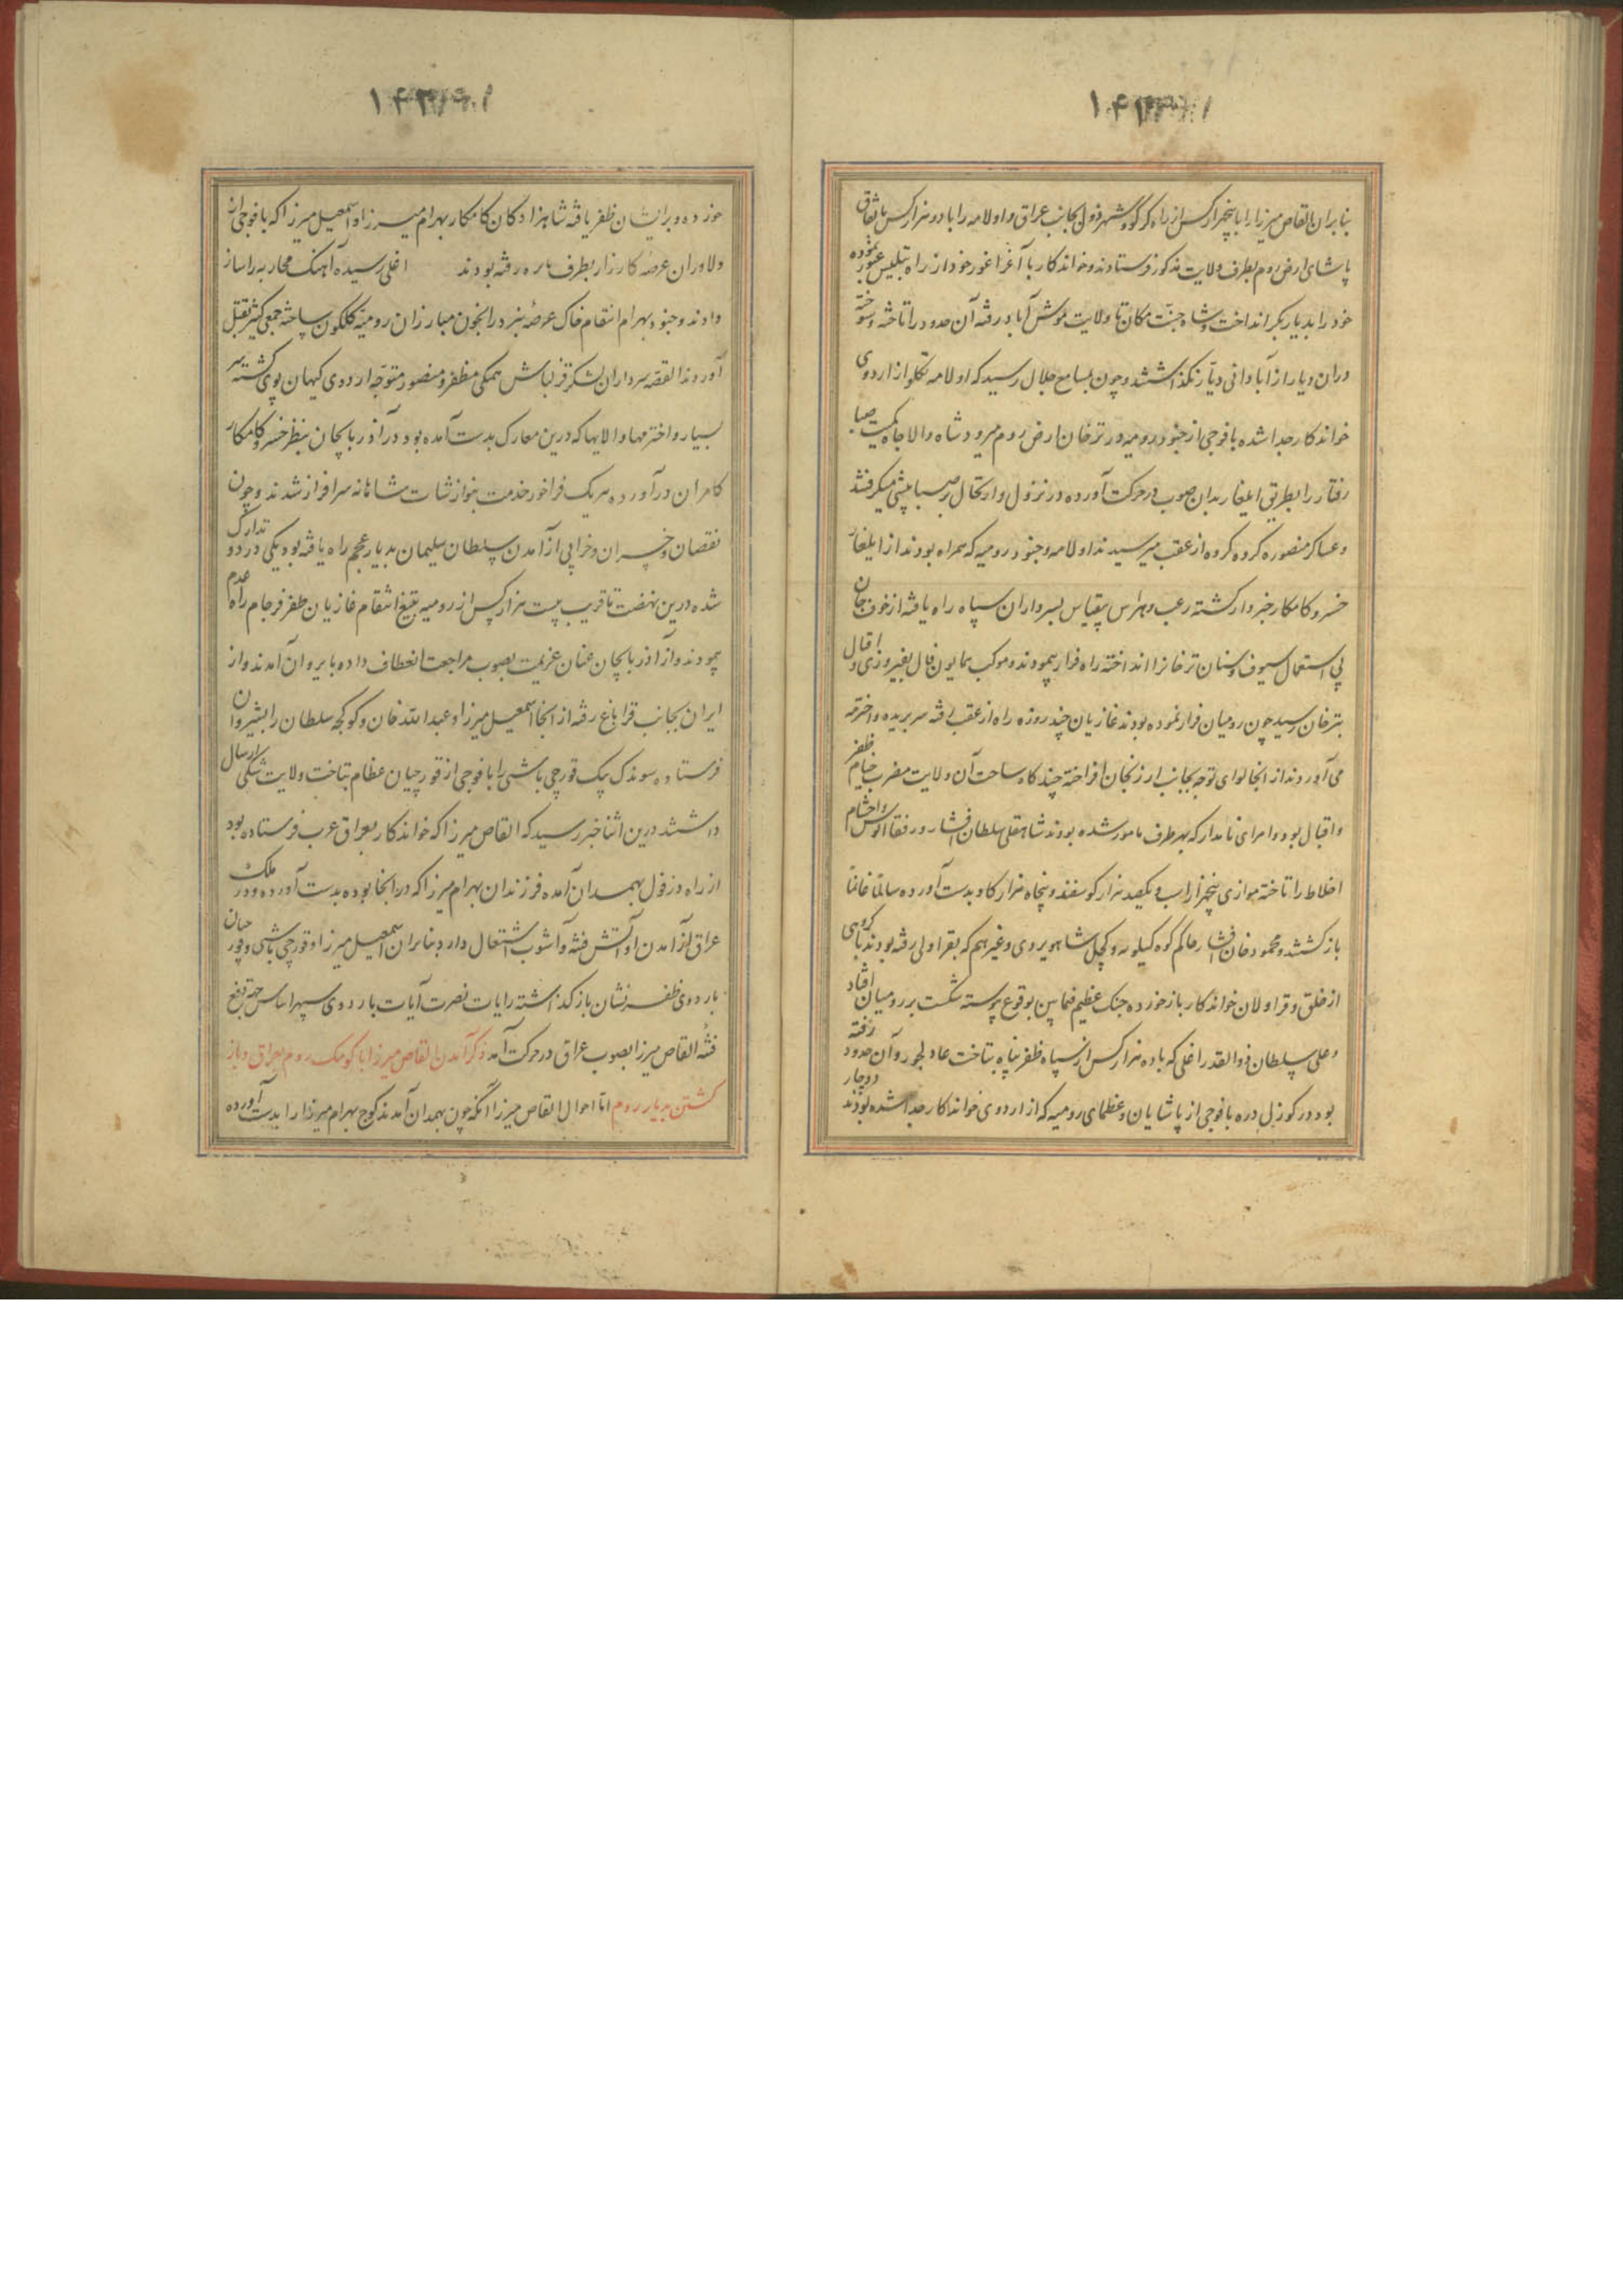 بنابران القاص میرزا را با پنجهزار کس از راه کرکوک و شهرزول بجانب عراق و اولامه را با دو هزار کس باتفاق
پاشای ارض روم بطرف ولایت مذکور فرستادند و خواندکار با آغرا غور خود از راه تبلیس عبور نموده
خود را بدیار بکر انداخت و شاه جنت مکان تا ولایت موش آباد رفته آن حدود را تاخته و سوخته
دران دیار از آبادانی دیار نگذاشتند و چون بمسامع جلال رسید که اولامه تکلو از اردوی
خواندکار جدا شده با فوجی از جنود رومیه در ترخان ارض روم میرود شاه والا جاه کمیت صبا
رفتار را بطریق ایلغار بدان صوب در حرکت آورده در نزول و ارتحال بر صبا پیشی میگرفتند
و عساکر منصوره گروه گروه از عقب میرسیدند اولامه و جنود رومیه که همراه بودند از ایلغار
خسرو کامکار خبردار گشته رعب و هراس بیقیاس بسرداران سپاه راه یافته از خوف جان
بی استعمال سیوف و سنان ترخان را انداخته راه فرار پیمودند و موکب همایون فال بفیروزی و اقبال
بترخان رسید چون رومیان فرار نموده بودند غازیان چند روزه راه از عقب رفته سر بریده و اخترمه
می آوردند از انجا لوای توجه بجانب ارزنجان افراخته چند گاه ساحت آن ولایت مضرب خیام ظفر
و اقبال بود و امرای نامدار که بهر طرف مامور شده بودند شاهقلی سلطان افشار و رفقا الوس و احشام
اخلاط را تاخته موازی پنجهزار اسب و یکصد هزار گوسفند و پنجاه هزار گاو بدست آورده سالما غانما
باز گشتند و محمود خان افشار حاکم کوه کیلویه و کچل شاهویردی و غیرهم که بقراولی رفته بودند با گروهی
از خلق و قراولان خواندکار باز خورده جنک عظیم فیما بین بوقوع پیوسته شکست بر رومیان افتاد
و علی سلطان ذوالقدر اغلی که با ده هزار کس از سپاه ظفر پناه بتاخت عاد لجوز و آن حدود رفته
بود در کوزل دره با فوجی از پاشایان و عظمای رومیه که از اردوی خواندکار جدا شده بودند دوچار
خورده و بر ایشان ظفر یافته شاهزادگان کامکار بهرام میرزا و اسمعیل میرزا که با فوجی از
دلاوران عرصه کارزار بطرف رفته بودند اغلی رسیده آهنک محاربه را ساز
دادند و جنود بهرام انتقام خاک عرصه نبرد را بخون مبارزان رومیه گلگون ساخته جمعی کثیر بقتل
آوردند القصه سرداران لشکر قزلباش همگی مظفر و منصور متوجه اردوی کیهان پوی گشته سر
بسیار و اخترمها و الایها که درین معارک بدست آمده بود در آذربایجان بنظر خسرو کامکار
کامران درآورده هر یک فراخور خدمت بنوازشات شاهانه سرافراز شدند و چون
نقصان و خسران و خرابی از آمدن سلطان سلیمان بدیار عجم راه یافته بود یکی در دو تدارک
شده درین نهضت تا قریب بیست هزار کس از رومیه بتیغ انتقام غازیان ظفر فرجام راه عدم
پیمودند و از آذربایجان عنان عزیمت بصوب مراجعت انعطاف داده بایروان آمدند و از
ایران بجانب قراباغ رفته از انجا اسمعیل میرزا و عبدالله خان و کوکجه سلطان را بشیروان
فرستاده سوندک بیک قورچی باشی را با فوجی از قورچیان عظام بتاخت ولایت شکی ارسال
داشتند درین اثنا خبر رسید که القاص میرزا که خواندکار بعراق عرب فرستاده بود
از راه دزفول بهمدان آمده فرزندان بهرام میرزا که در انجا بوده بدست آورده و در ملک
عراق از آمدن او آتش فتنه و آشوب اشتعال دارد بنابران اسمعیل میرزا و قورچی باشی و پور حیان
باردوی ظفر نشان باز گذاشته رایات نصرت آیات باردوی سپهر اساس جهة دفع
فتنه القاص میرزا بصوب عراق در حرکت آمد ذکر آمدن القاص میرزا با کومک روم بعراق و باز
گشتن بدیار روم اما احوال القاص میرزا آنکه چون بهمدان آمدند کوچ بهرام میرزا را بدست آورده